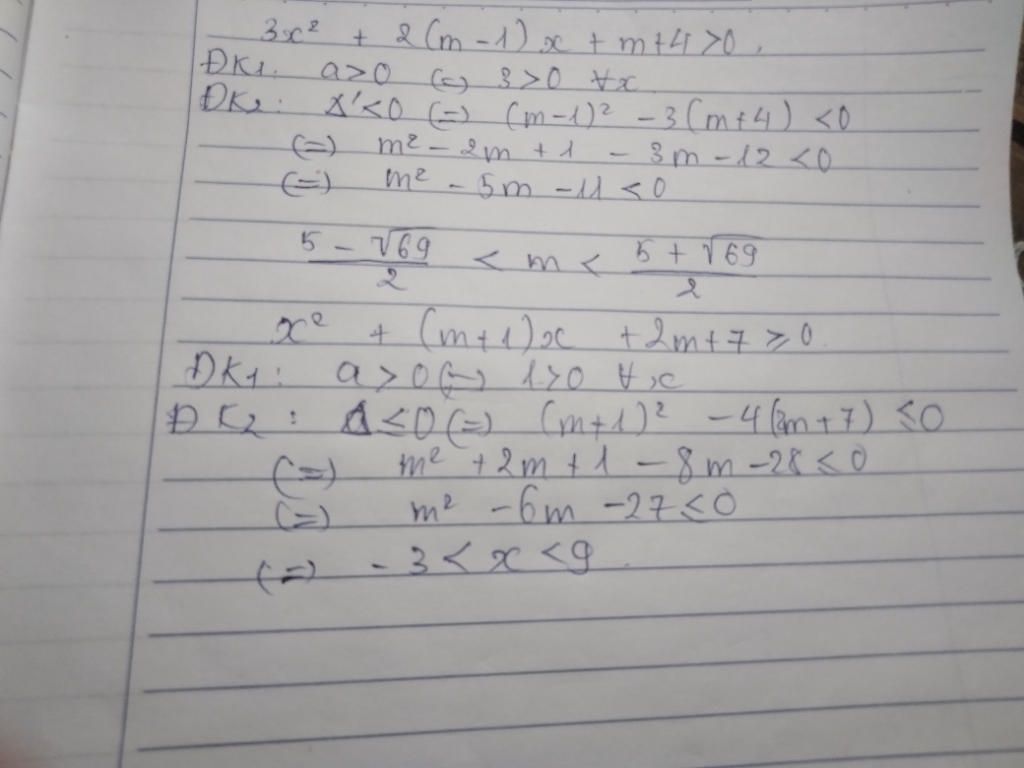 3x² + 2(m-1)x + m+4 >0.
ĐK1. a>0 (=) 3>0 ∀x
ĐK2: Δ'<0 (=) (m-1)² - 3(m+4) <0
(=) m² - 2m + 1 - 3m - 12 <0
(=) m² - 5m - 11 < 0
(5 - √69)/2 < m < (5 + √69)/2
x² + (m+1)x + 2m+7 ≥ 0.
ĐK1: a > 0 (=) 1>0 ∀x
ĐK2: Δ ≤ 0 (=) (m+1)² - 4(2m+7) ≤ 0
(=) m² + 2m + 1 - 8m - 28 ≤ 0
(=) m² - 6m - 27 ≤ 0
(=) -3 < x < 9.